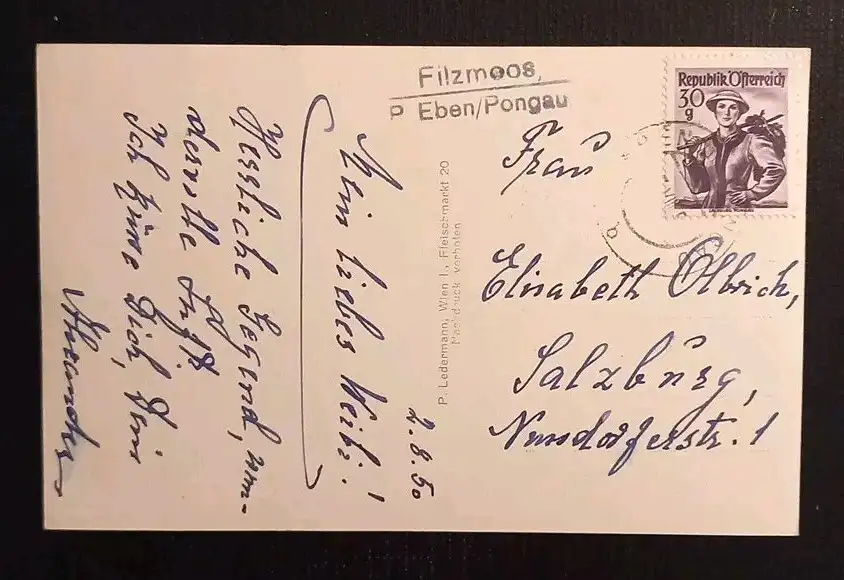 Filzmoos,
P. Eben/Pongau
Republik Österreich
30
g
Frau
Elisabeth Olbrich,
Salzburg,
Nonndorferstr. 1
P. Ledermann, Wien I., Fleischmarkt 20
Nachdruck verboten
2.8.50
Mein liebes Weibi!
Herrliche Gegend, wun-
dervolle Luft!
Ich küsse Dich, Dein
Alexander